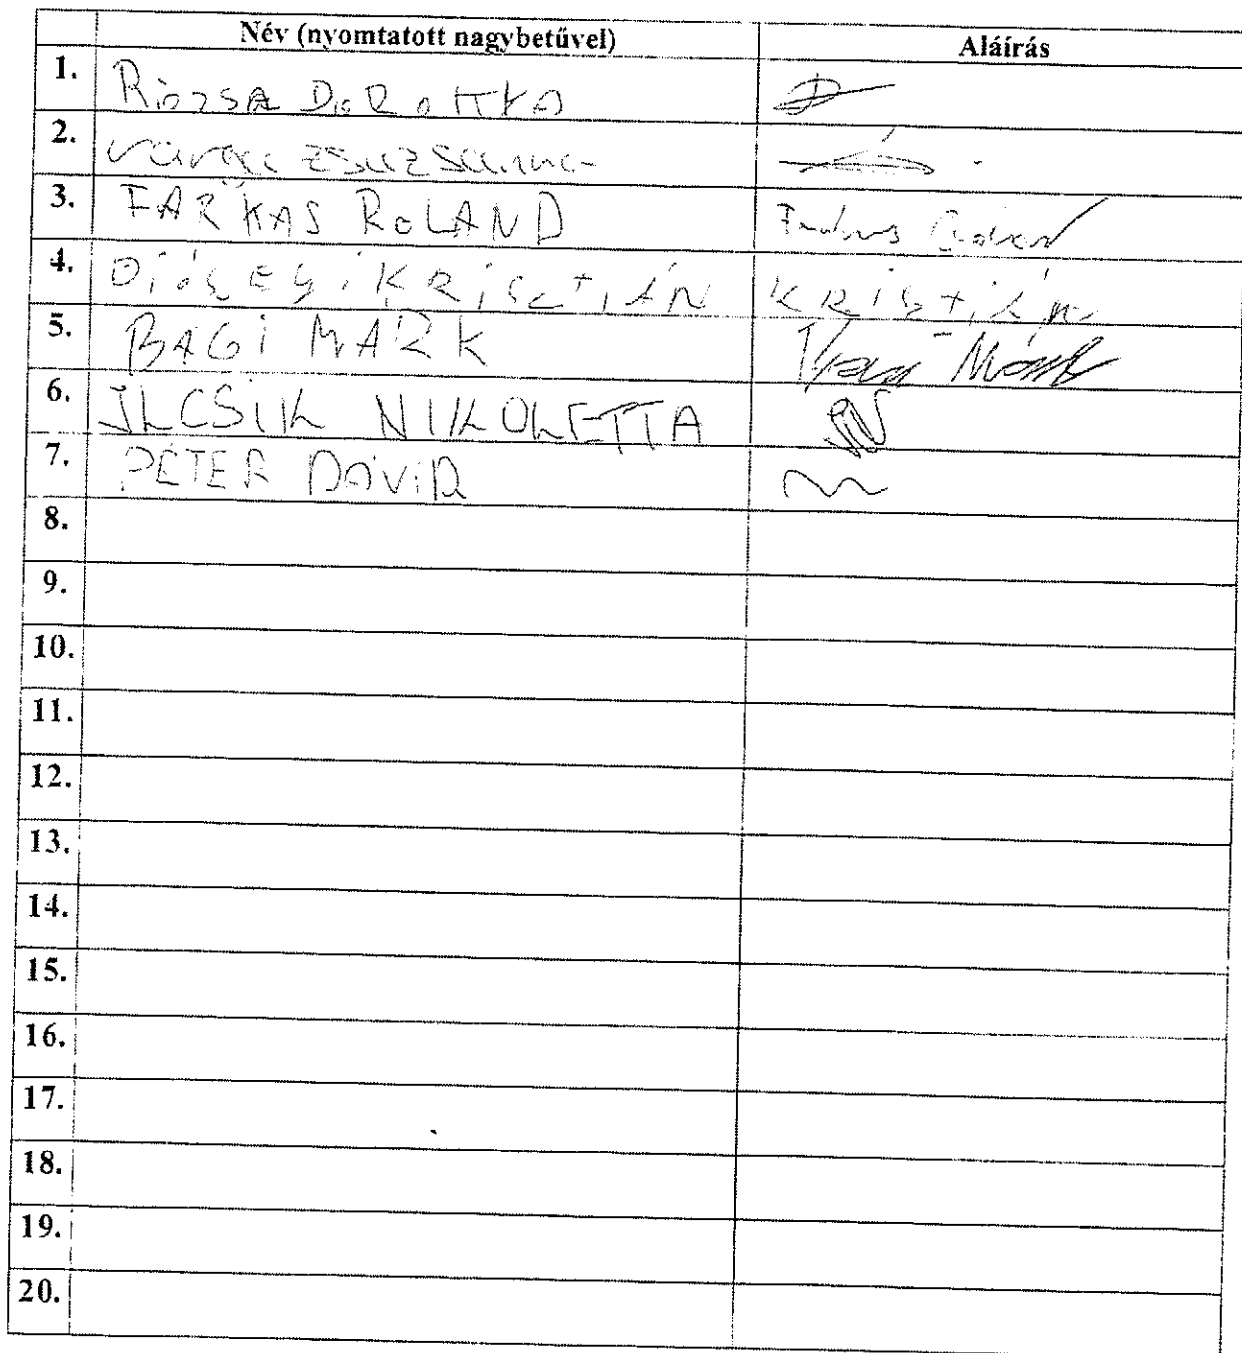 Név (nyomtatott nagybetűvel) Aláírás
1. RÓZSA DOROTTYA
2. varga zsuzsanna
3. FARKAS ROLAND
4. DiÓSEGi KRiSZTiÁN KRiSTiÁN
5. BAGi MÁRK
6. ILCSIK NIKOLETTA
7. PÉTER DÁViD
8.
9.
10.
11.
12.
13.
14.
15.
16.
17.
18.
19.
20.